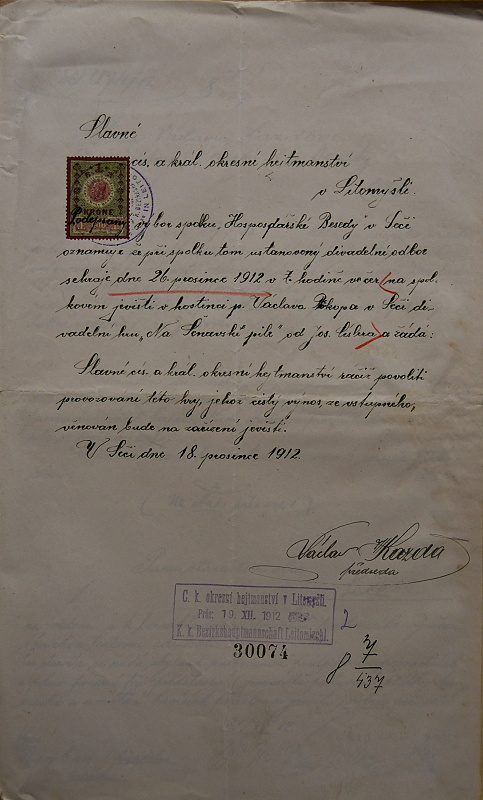 Slavné
cís. a král. okresní hejtmanství
v Litomyšli.
1
KRONE
Podepsaný výbor spolku „Hospodářské Besedy" v Seči
oznamuje, že při spolku tom ustanovený divadelní odbor
sehraje dne 26. prosince 1912 v 7. hodině večer na spol-
kovém jevišti v hostinci p. Václava v Seči di-
vadelní hru „Na pile" od Jos. a žádá:
Slavné cís. a král. okresní hejtmanství račiž povoliti
provozování této hry, jehož čistý výnos, ze vstupného,
věnován bude na zařízení jeviště.
V Seči dne 18. prosince 1912.
Václav Kazda
předseda
C. k. okresní hejtmanství v Litomyšli.
Präs. 19. XII. 1912
K. k. Bezirkshauptmannschaft Leitomischl.
30074
2
8 7
437